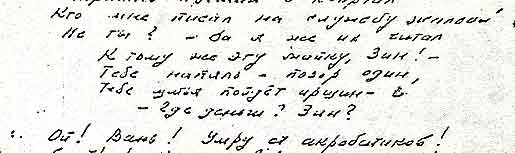 Кто мне писал на службу жалобы?
Не ты? – Да я же их читал
К тому же эту майку, Зин! –
Тебе напяль – позор один,
Тебе шитья пойдёт аршин –
– Где деньги? Зин?
Ой! Вань! Умру от акробатиков!